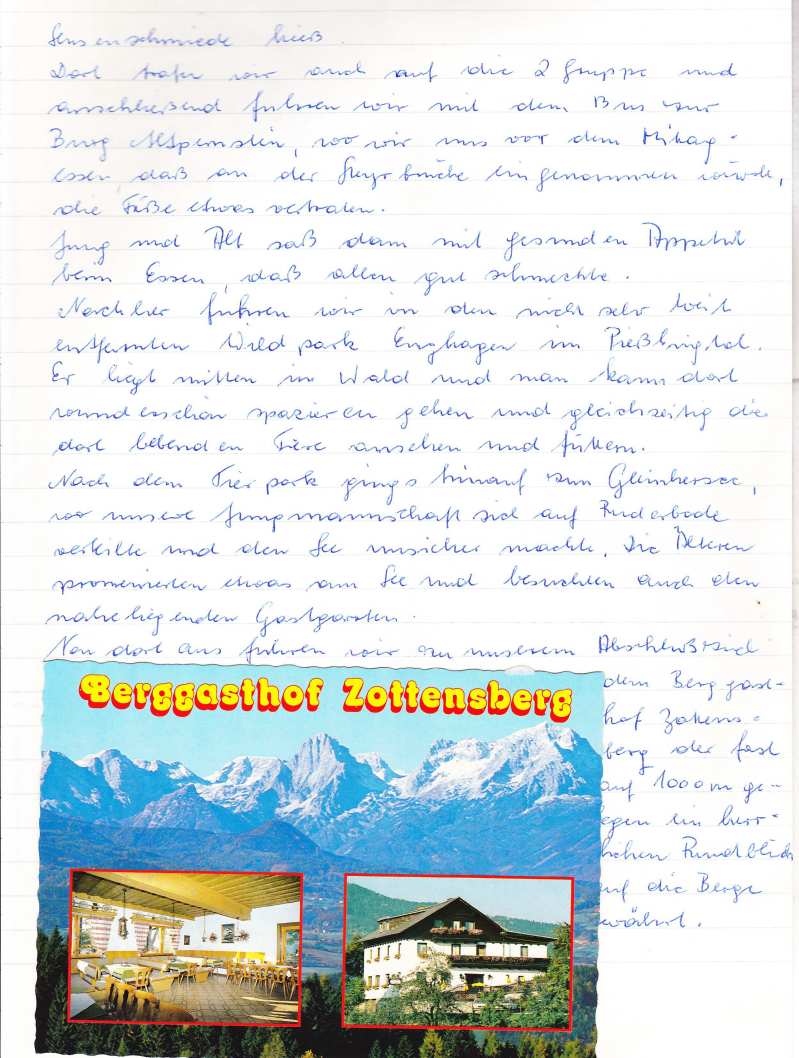 Sensenschmiede hieß.
Dort trafen wir auch auf die 2 Gruppe und
anschließend fuhren wir mit dem Bus zur
Burg Altpernstein, wo wir uns vor dem Mittag-
essen daß an der Steyrbrücke eingenommen wurde,
die Füße etwas vertraten.
Jung und Alt saß dann mit gesunden Appetit
beim Essen, daß allen gut schmeckte.
Nachher fuhren wir in den nicht sehr weit
entfernten Wildpark Enghagen im Pießlingtal.
Er liegt mitten im Wald und man kann dort
wunderschön spazieren gehen und gleichzeitig die
dort lebenden Tiere ansehen und füttern.
Nach dem Tierpark gings hinauf zum Gleinkersee,
wo unsere Jungmannschaft sich auf Ruderbode
verteilte und den See unsicher machte. Die Älteren
promenierten etwas am See und besuchten auch den
naheliegenden Gastgarten.
Von dort aus fuhren wir zu unserem Abschlußziel
dem Berggast-
hof Zottens-
berg der fast
auf 1000 m ge-
legen ein herr-
lichen Rundblick
auf die Berge
währt.
Berggasthof Zottensberg